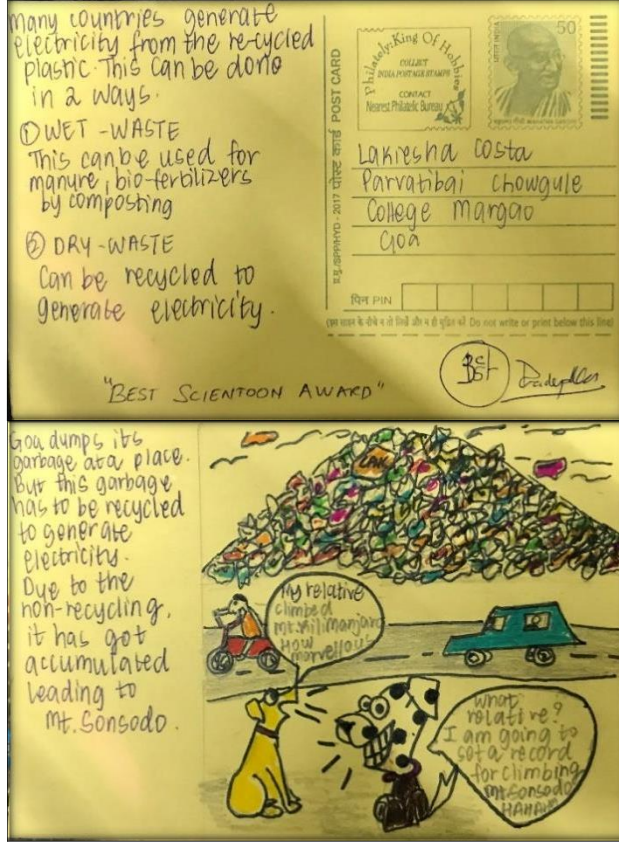 many countries generate
electricity from the re-cycled
plastic. This can be done
in 2 ways.
① WET-WASTE
This can be used for
manure, bio-fertilizers
by composting
② DRY-WASTE
Can be recycled to
generate electricity.
"BEST SCIENTOON AWARD"
Philately: King Of Hobbies
COLLECT
INDIA POSTAGE STAMPS
CONTACT
Nearest Philatelic Bureau
50
पोस्ट कार्ड POST CARD
2017
Lakiesha Costa
Parvatibai Chowgule
College Margao
Goa
पिन PIN
(इस लाइन के नीचे न तो लिखें और न ही मुद्रित करें Do not write or print below this line)
Goa dumps its
garbage at a place.
But this garbage
has to be recycled
to generate
electricity.
Due to the
non-recycling,
it has got
accumulated
leading to
Mt. Sonsodo.
My relative
climbed
Mt. Kilimanjaro
How
marvellous
what
relative?
I am going to
set a record
for climbing
Mt Sonsodo
HAHAHA